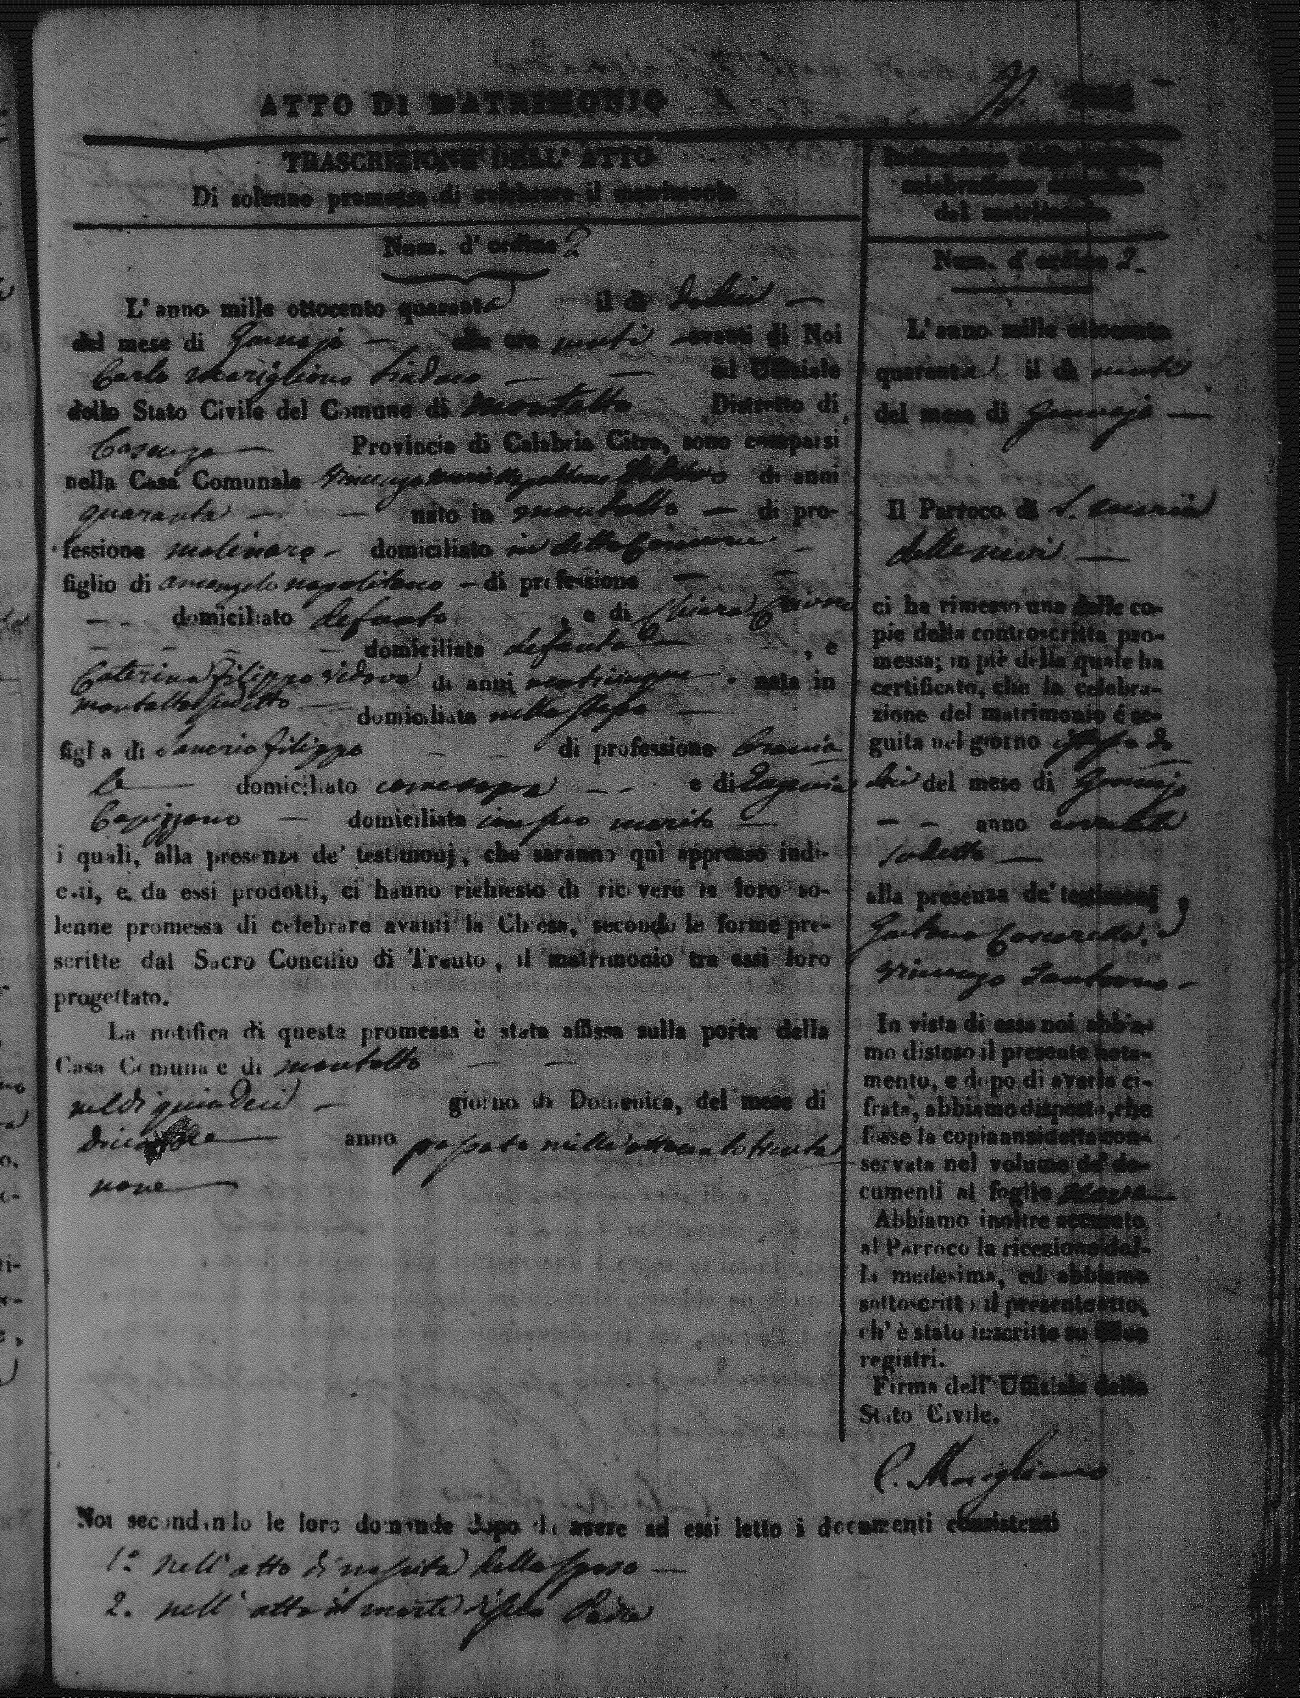 ATTO DI MATRIMONIO
TRASCRIZIONE DELL' ATTO
Di solenne promessa di celebrare il matrimonio
Num. d' ordine 2
L' anno mille ottocento quaranta il dì dodici
del mese di Gennajo alle ore venti avanti di Noi
Carlo Marigliano Sindaco ed Uffiziale
dello Stato Civile del Comune di Montalto Distretto di
Cosenza Provincia di Calabria Citra, sono comparsi
nella Casa Comunale Vincenzo Maria Napolitano di anni
quaranta nato in Montalto di pro-
fessione molinaro domiciliato in detto Comune
figlio di Arcangelo Napolitano di professione
domiciliato defunto, e di Chiara
domiciliata defunta, e
Caterina Filippo vedova di anni venticinque nata in
Montalto sudetto domiciliata nella stessa
figlia di Saverio Filippo di professione
domiciliato come sopra e di
Capizzano domiciliata con suo marito
i quali, alla presenza de' testimonj, che saranno quì appresso indi-
cati, e da essi prodotti, ci hanno richiesto di ricevere la loro so-
lenne promessa di celebrare avanti la Chiesa, secondo le forme pre-
scritte dal Sacro Concilio di Trento, il matrimonio tra essi loro
progettato.
La notifica di questa promessa è stata affissa sulla porta della
Casa Comunale di Montalto
nel dì quindeci giorno di Domenica, del mese di
Dicembre anno passato mille ottocento trenta
nove
Noi secondando le loro domande dopo di avere ad essi letto i documenti consistenti
1.° nell' atto di nascita della sposa
2. nell' atto di morte di suo Padre
del matrimonio
Num. d' ordine 2.
L' anno mille ottocento
quaranta il dì venti
del mese di Gennajo
Il Parroco di S. Maria
della neve
ci ha rimesso una delle co-
pie della controscritta pro-
messa; in piè della quale ha
certificato, che la celebra-
zione del matrimonio è se-
guita nel giorno
del mese di Gennajo
anno corrente
sudetto
alla presenza de' testimonj
Gaetano Coscarella, e
Vincenzo
In vista di essa noi abbia-
mo disteso il presente nota-
mento, e dopo di averla ci-
frata, abbiamo disposto, che
fosse la copia anzidetta con-
servata nel volume de' do-
cumenti al foglio
Abbiamo inoltre accusato
al Parroco la ricezione del-
la medesima, ed abbiamo
sottoscritto il presente atto,
ch' è stato inscritto su i due
registri.
Firma dell' Uffiziale dello
Stato Civile.
C. Marigliano